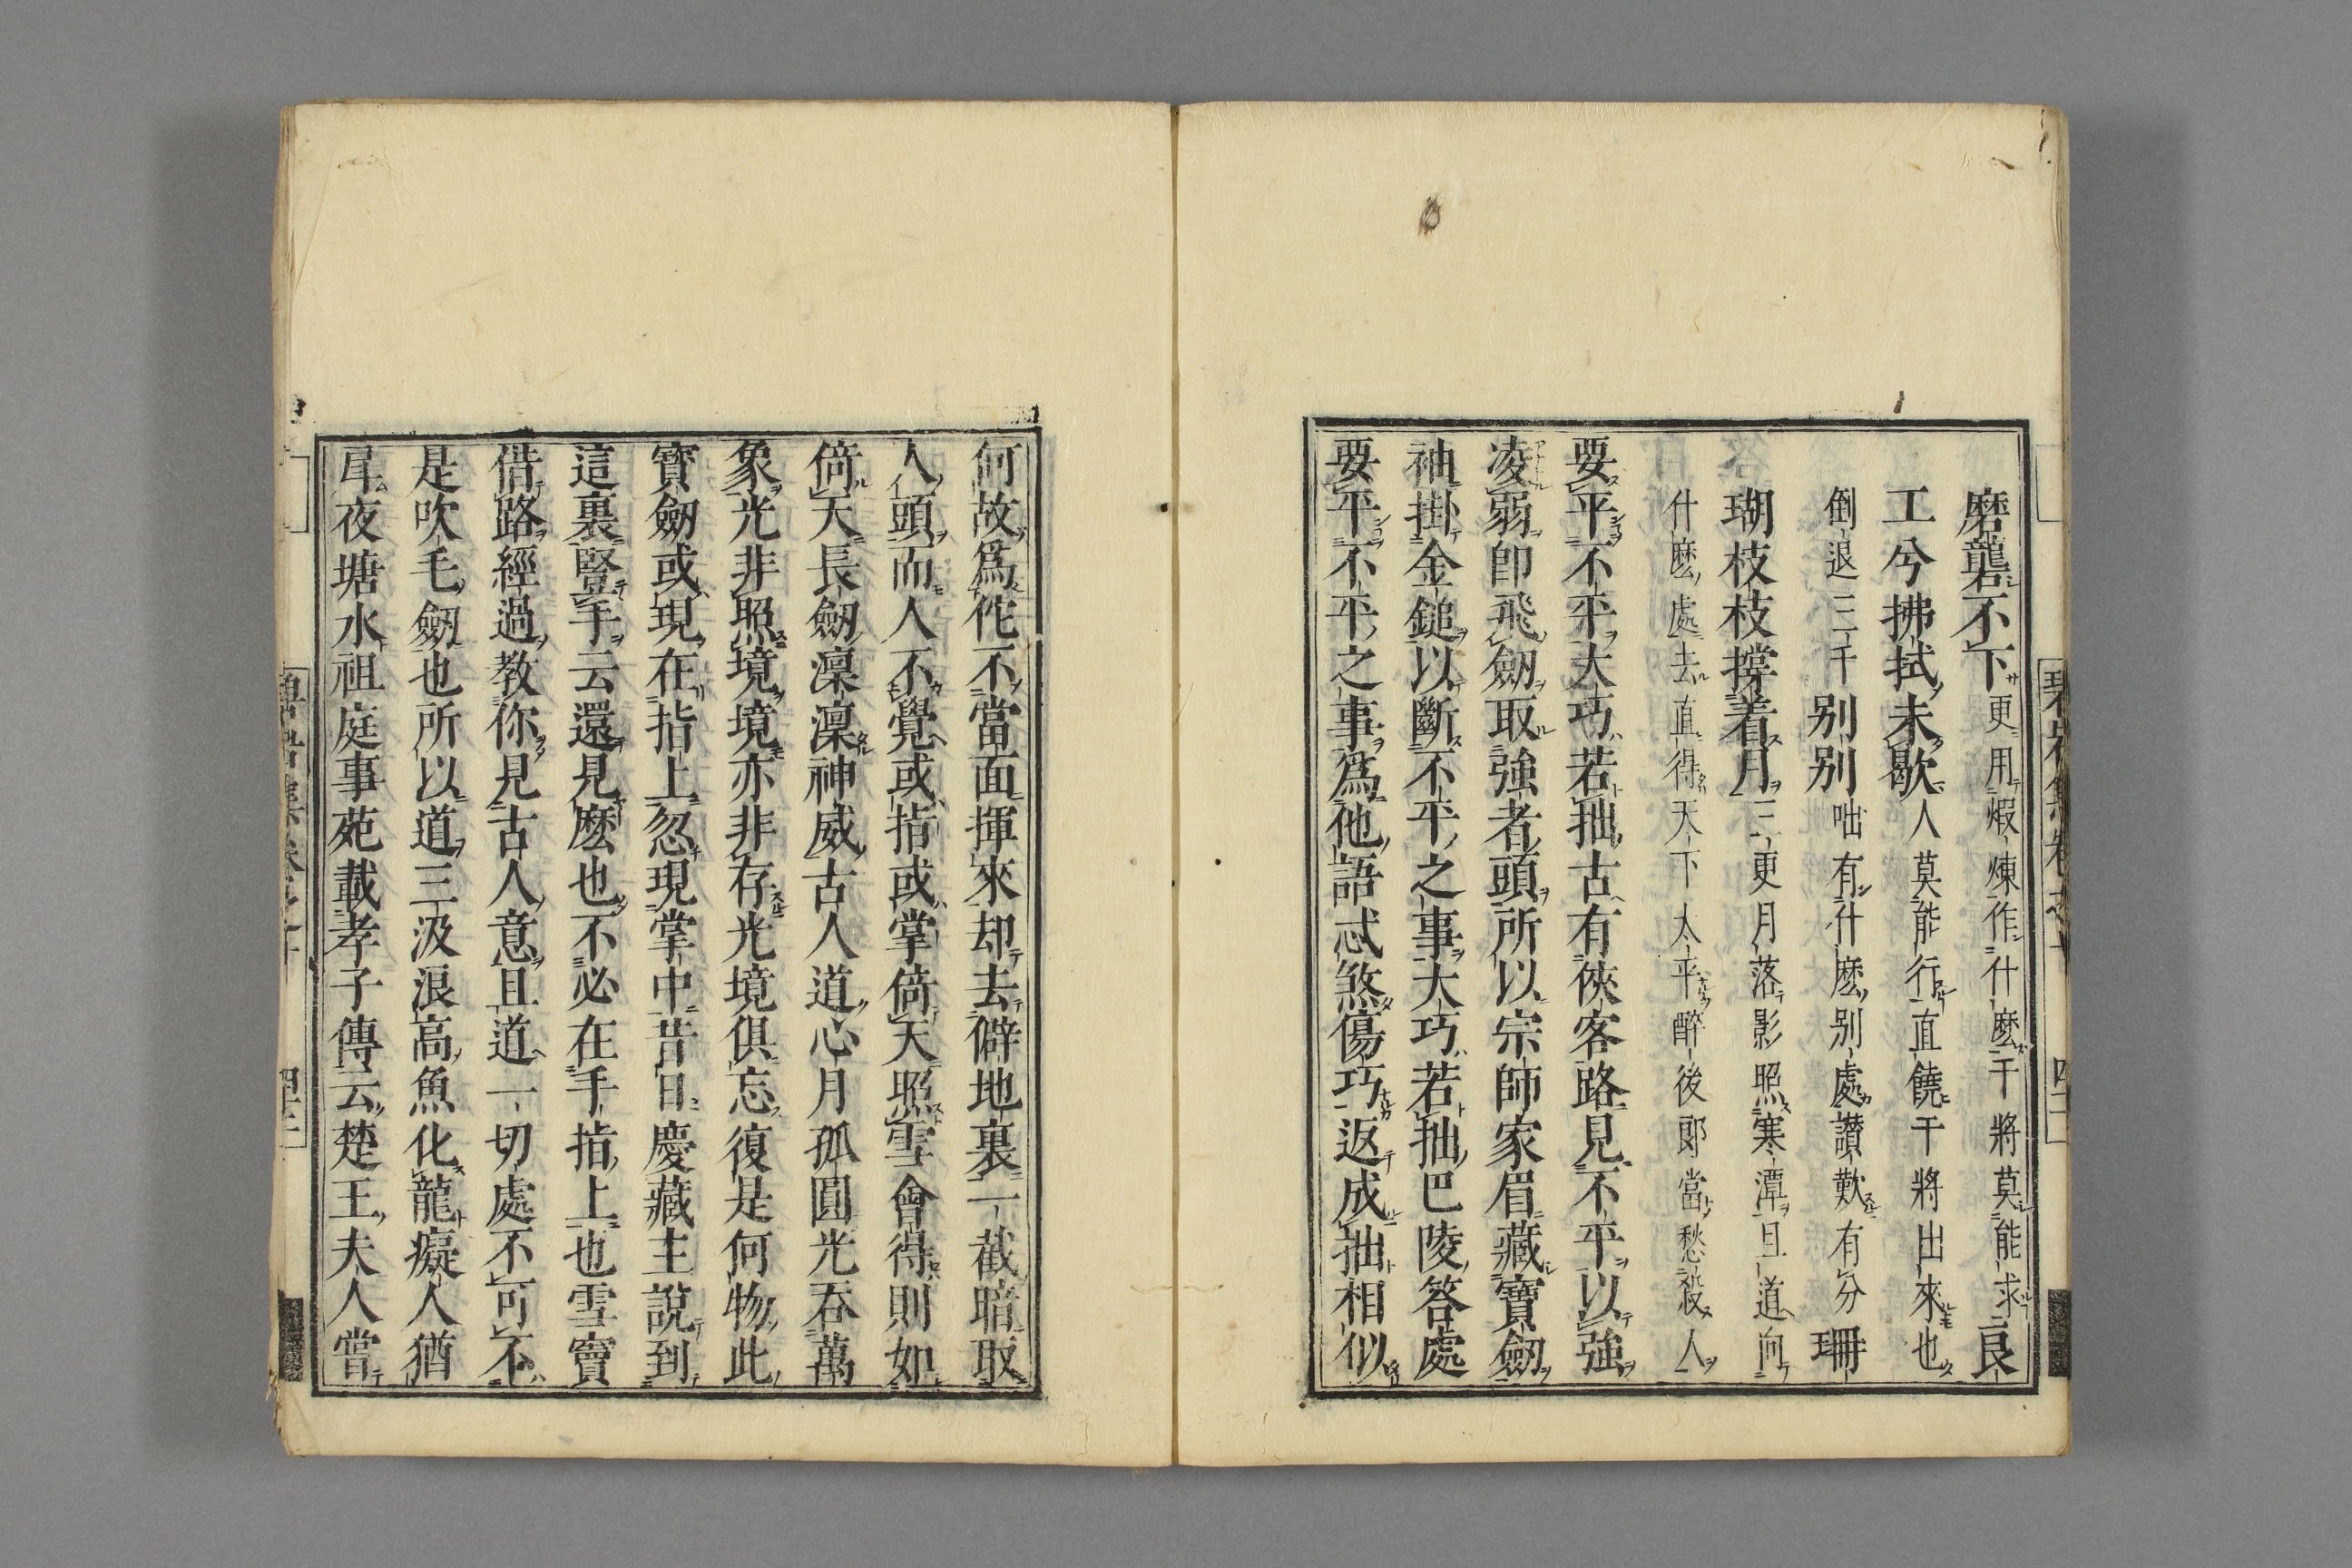 磨礱不下更用煆煉作什麼干將莫能求良
工兮拂拭未歇人莫能行直饒干將出來也
倒退三千别别咄有什麼别處讃歎有分珊
瑚枝枝撐着月三更月落影照寒潭且道向
什麼處去直得天下太平醉後郎當愁殺人
要平不平大巧若拙古有俠客路見不平以強
凌弱即飛劔取強者頭所以宗師家眉藏寶劔
袖掛金鎚以斷不平之事大巧若拙巴陵答處
要平不平之事爲他語忒煞傷巧返成拙相似
何故爲佗不當面揮來却去僻地裏一截暗取
人頭而人不覺或指或掌倚天照雪會得則如
倚天長劔凜凜神威古人道心月孤圓光吞萬
象光非照境境亦非存光境俱忘復是何物此
寶劔或現在指上忽現掌中昔日慶藏主說到
這裏豎手云還見麼也不必在手指上也雪竇
借路經過教你見古人意且道一切處不可不
是吹毛劔也所以道三汲浪高魚化龍癡人猶
戽夜塘水祖庭事苑載孝子傳云楚王夫人嘗